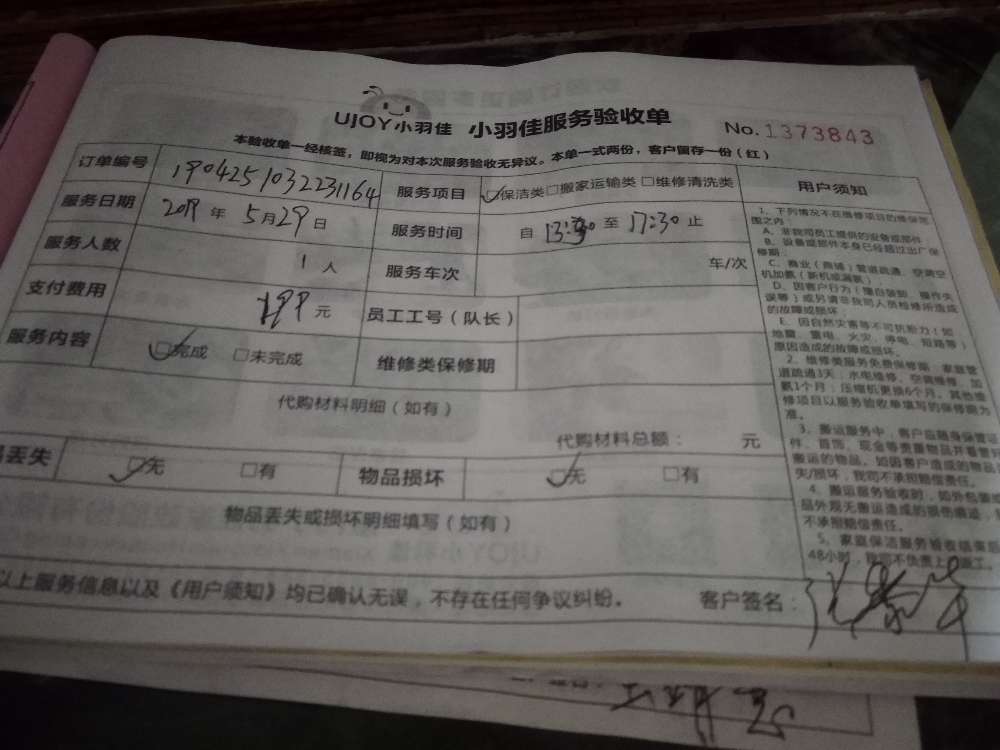 UJOY小羽佳 小羽佳服务验收单 No.1373843
本验收单一经核签，即视为对本次服务验收无异议。本单一式两份，客户留存一份（红）
订单编号 1904251032231164 服务项目 保洁类 搬家运输类 维修清洗类 用户须知
服务日期 2019年 5月29日 服务时间 自 13:30 至 17:30 止
服务人数 1人 服务车次 车/次
支付费用 199元 员工工号（队长）
服务内容 完成 未完成 维修类保修期
代购材料明细（如有）
代购材料总额： 元
丢失 无 有 物品损坏 无 有
物品丢失或损坏明细填写（如有）
以上服务信息以及《用户须知》均已确认无误，不存在任何争议纠纷。 客户签名：
1、下列情况不在维修项目的维保范
围之内：
A、非我司员工提供的设备或部件
B、设备或部件本身已经超过出厂保
修期；
C、商业（商铺）管道疏通、空调空
机加氟（新机或漏氟）
D、因客户行为（擅自装卸、操作失
误等）或另请非我司人员检修所造成
的故障或损坏；
E、因自然灾害等不可抗拒力（如
地震、雷电、火灾、停电、短路等）
原因造成的故障或损坏。
2、维修类服务免费保修期：家庭管
道疏通3天；水电维修、空调维修、加
氟1个月；压缩机更换6个月。其他维
修项目以服务验收单填写的保修期为
准。
3、搬运服务中，客户应随身保管证
件、首饰、现金等贵重物品并看管
搬运的物品。如因客户造成的物品
失/损坏，我司不承担赔偿责任。
4、搬运服务验收时，如外包装
品外观无搬运造成的损伤痕迹，
不承担赔偿责任。
5、家庭保洁服务验收结束后
48小时，我司不负责上门返工。